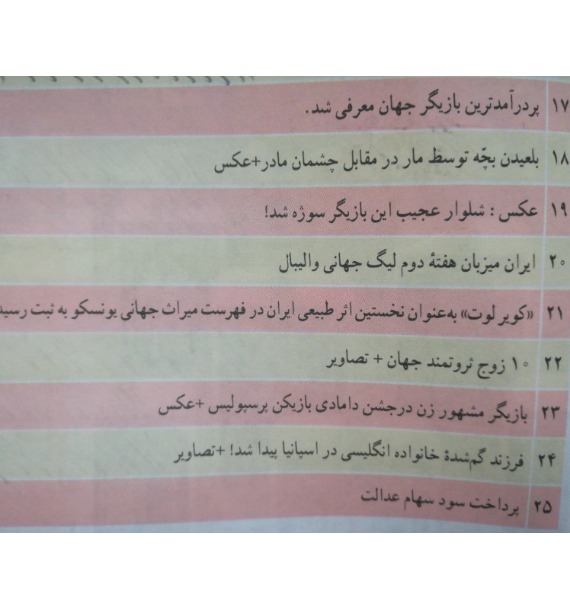 ۱۷ پردرآمدترین بازیگر جهان معرفی شد.
۱۸ بلعیدن بچّه توسط مار در مقابل چشمان مادر+عکس
۱۹ عکس : شلوار عجیب این بازیگر سوژه شد!
۲۰ ایران میزبان هفتهٔ دوم لیگ جهانی والیبال
۲۱ «کویر لوت» به‌عنوان نخستین اثر طبیعی ایران در فهرست میراث جهانی یونسکو به ثبت رسید
۲۲ ۱۰ زوج ثروتمند جهان + تصاویر
۲۳ بازیگر مشهور زن درجشن دامادی بازیکن پرسپولیس +عکس
۲۴ فرزند گم‌شدهٔ خانواده انگلیسی در اسپانیا پیدا شد! +تصاویر
۲۵ پرداخت سود سهام عدالت